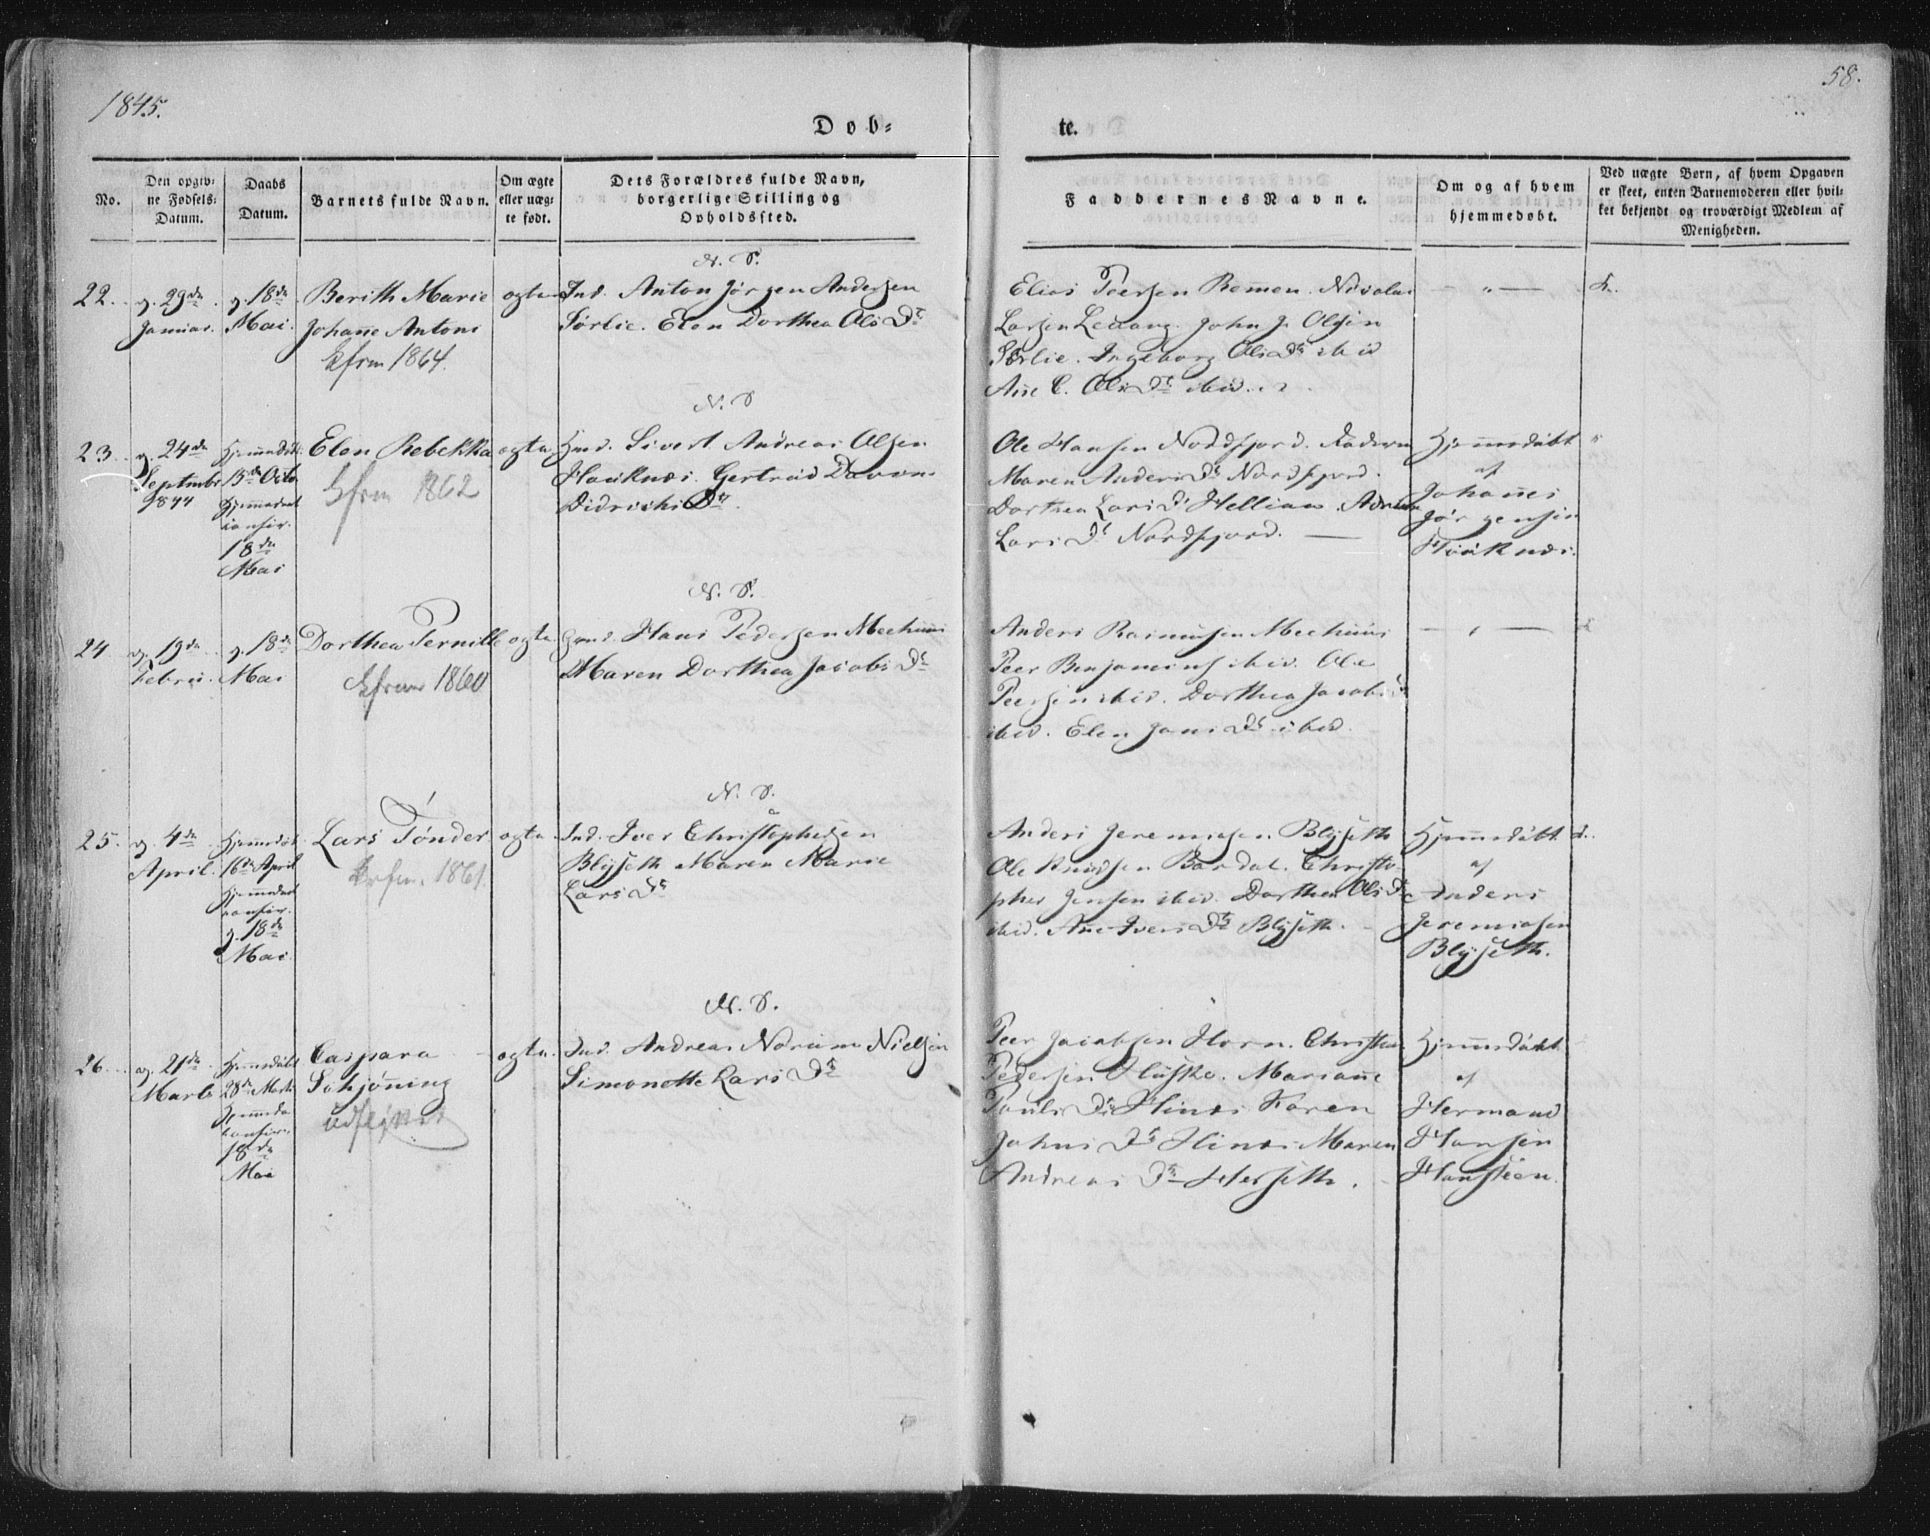 1845.
58.
Dob=
te.
No.
Den opgiv=
ne Fødsels=
Datum.
Daabs
Datum.
Barnets fulde Navn.
Om ægte
eller uæg=
te født.
Dets Forældres fulde Navn,
borgerlige Stilling og
Opholdssted.
Faddernes Navne.
Om og af hvem
hjemmedøbt.
Ved uægte Børn, af hvem Opgaven
er skeet, enten Barnemoderen eller hvil=
ket bekjendt og troværdigt Medlem af
Menigheden.
N. S.
22.
29de
Januar.
18de
Mai.
Berith Marie
Johanne Antoni
Cfrm 1864.
ægte
Ind. Anton Jørgen Andersen
Sørlie. Elen Dorthea Ols Dt
Elias Peersen Remen. Nicolai
Larsen Levang. John J. Olsen
Sørlie. Ingeborg Ols Dt ibid
Ane C. Ols Dt ibid.
N. S
23.
24de
Septmbr
1844
Hjemmedøbt
13de Octb.
18de
Mai
Elen Rebekka
Cfrm 1862
ægte
Sivert Andreas Olsen
Haviknæs. Gertrud
Didrichs Dt.
Ole Hansen Nordfjord.
Maren Anders Dt Nordfjord.
Dorthea Lars Dt
Lars Dt Nordfjord.
Hjemmedøbt
af
Johannes
Jørgensen
N. S.
24
19de
Februar.
18de
Mai
Dorthea Pernille
Cfrm 1860
ægte
Hans Pedersen
Maren Dorthea Jacobs Dt
Anders Rasmusen
Peer Benjamins ibid. Ole
Peersen ibid. Dorthea Jacobs Dt
ibid. Elen Jans Dt ibid.
N. S.
25.
4de
April.
Hjemmedøbt
16de April
18de
Mai.
Lars Tønder
1861
ægte
Ind. Iver Christophersen
Blyseth Maren Marie
Lars Dt
Anders Jeremiasen Blyseth
Ole Knudsen Bardal. Christo=
pher Jensen ibid. Dorthea Ols Dt
ibid. Ane Ivers Dt Blyseth.
Hjemmedøbt
af
Anders
Jeremiasen
Blyseth.
N. S.
26.
21de
Marts
Hjemmedøbt
28de Marts
18de
Mai
Caspara
Schjønning
udflyttet
ægte.
Ind. Andreas Norum Nielsen
Simonette Lars Dt
Peer Jacobsen Horn. Christian
Pedersen Marianne
Pauls Dt Karen
Johns Dt Maren
Andreas Dt Herseth.
Hjemmedøbt
af
Hermand
Hansen
Hansteen.